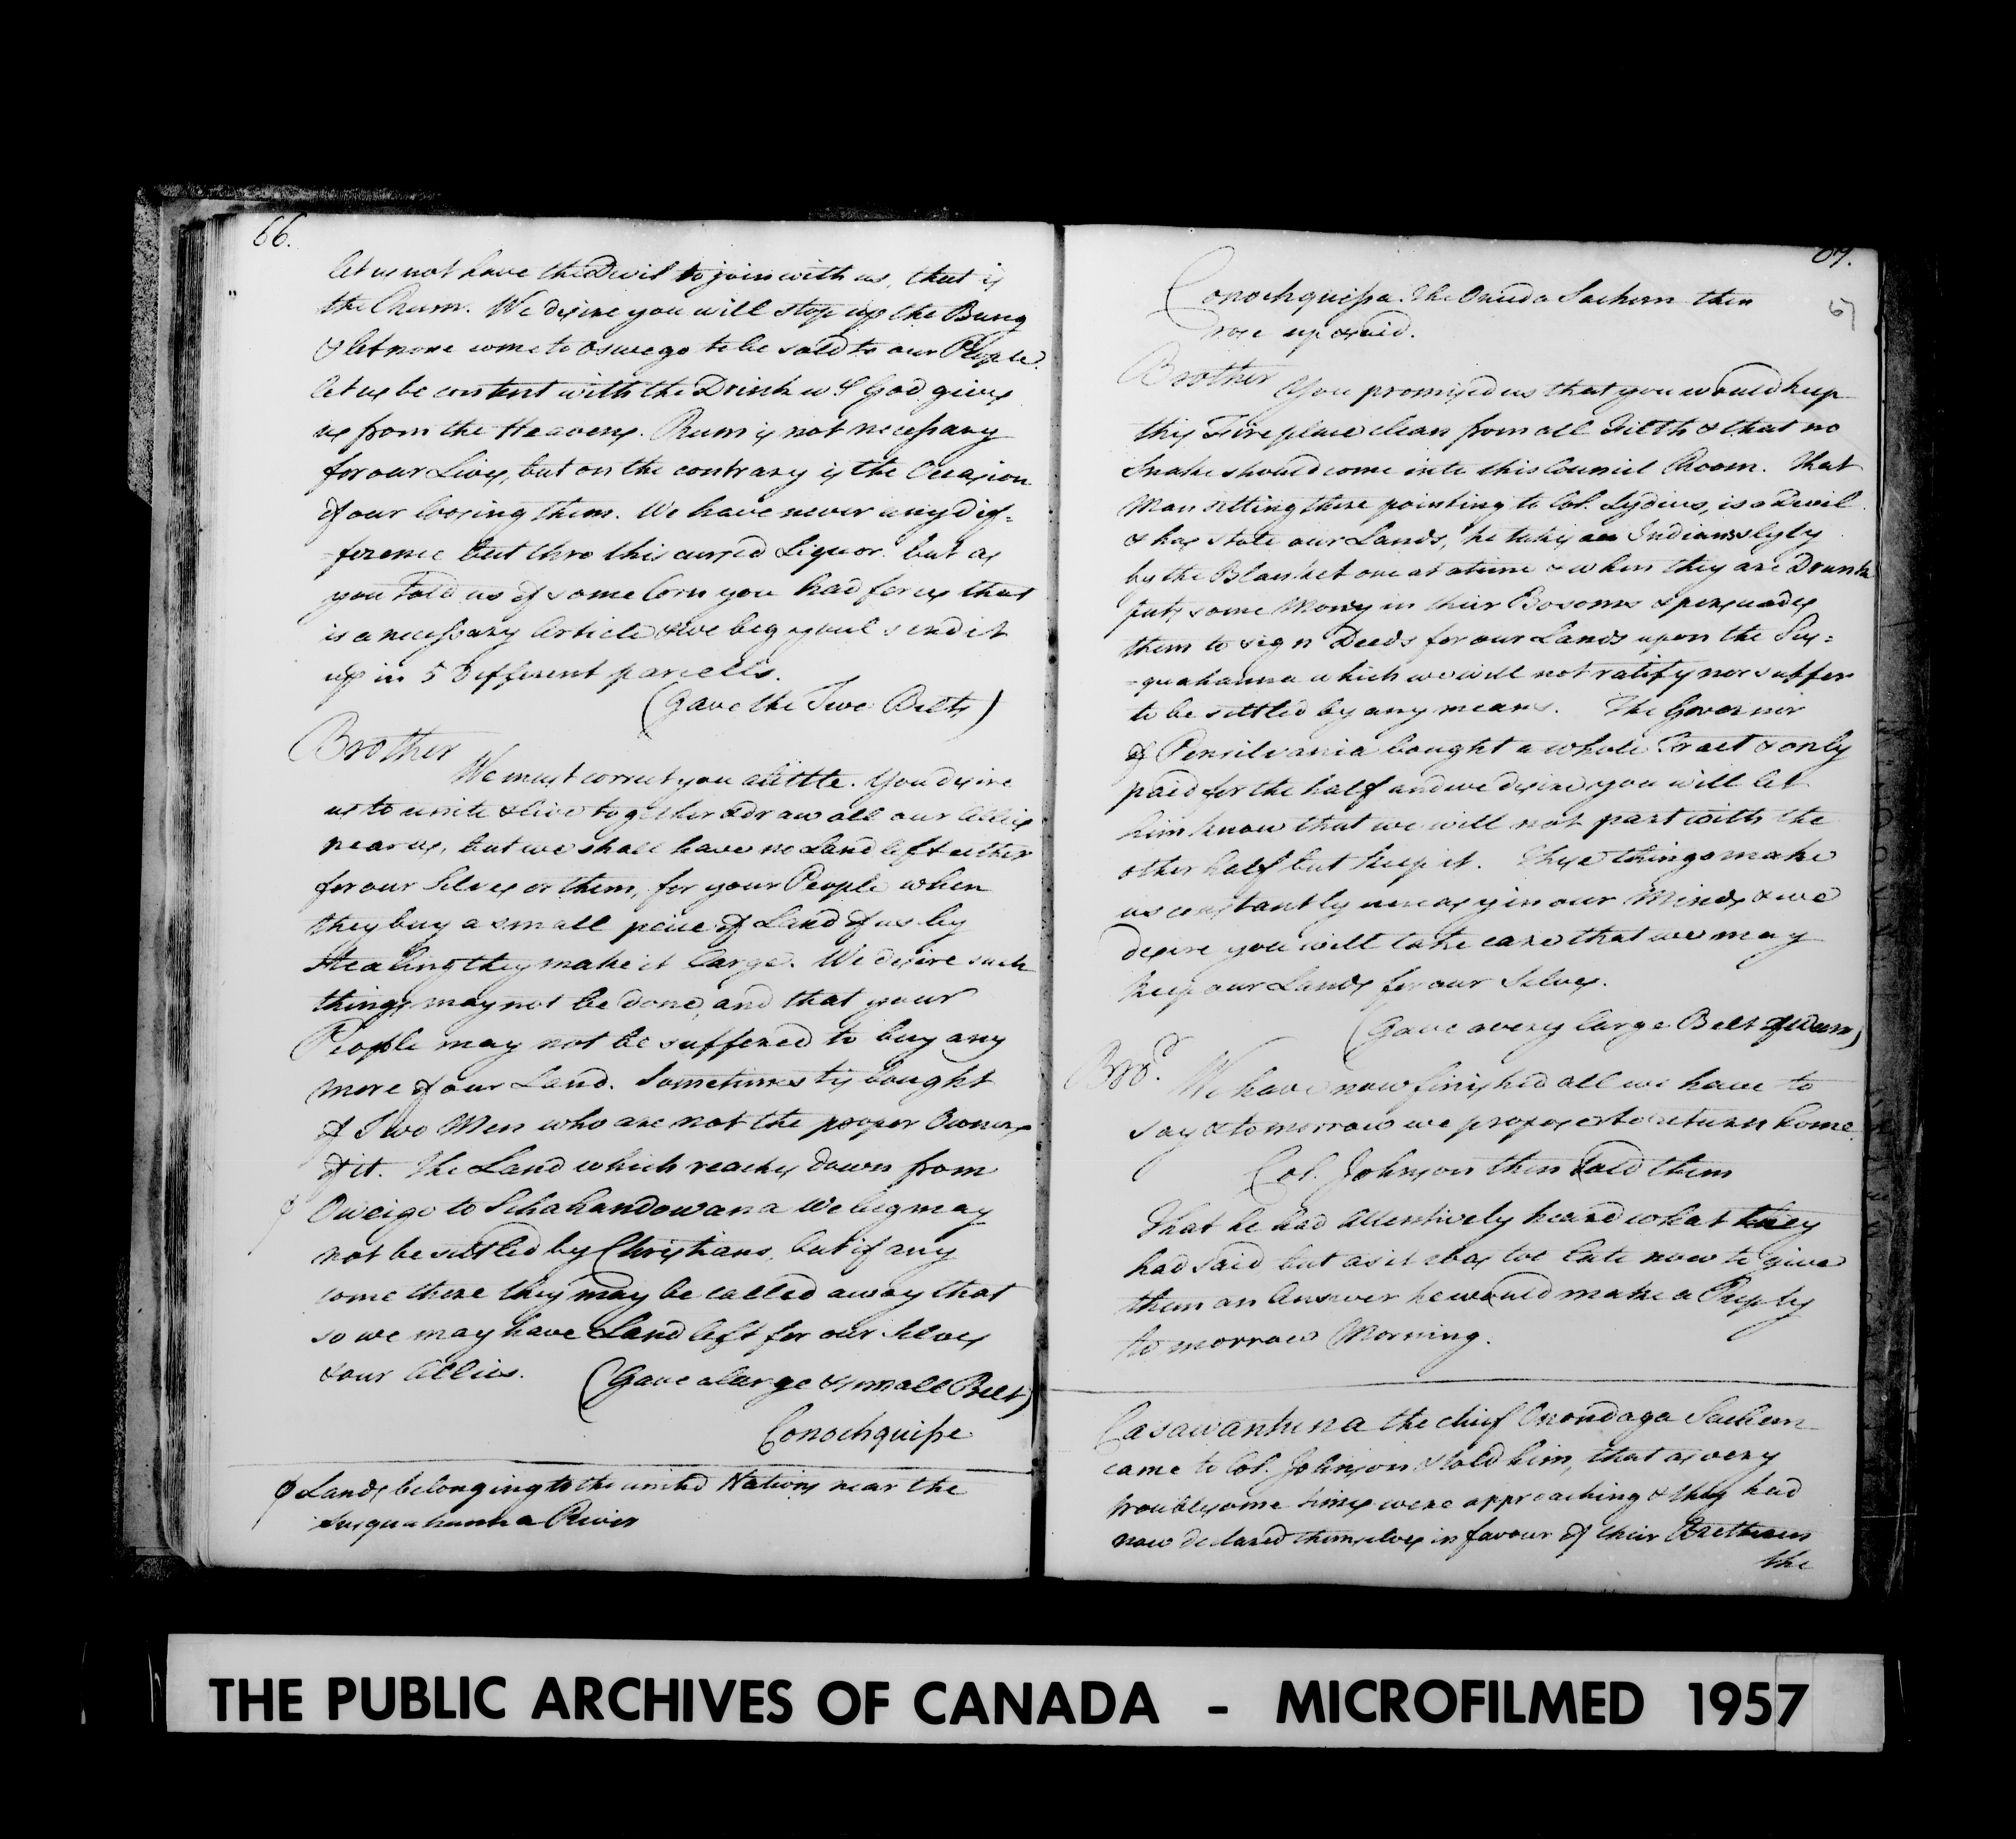 66.
let us not have the Devil to join with us, that is
the Rum. We desire you will stop up the Bung
& let none come to Oswego to be sold to our People.
let us be content with the Drink wch God gives
us from the Heavens. Rum is not necessary
for our Lives, but on the contrary is the Occasion
of our loosing them. We have never any dif=
=ference but thro this cursed Liquor. but as
you told us of some Corn you had for us that
is a necessary Article & we beg youl send it
up in 5 different parcells.
(Gave the Two Belts)
Brother
We must correct you alittle. You desire
us to unite & live together & draw all our Allies
near us, but we shall have no Land left either
for our Selves or them, for your People when
they buy a small peice of Land of us by
Stealing they make it large. We desire such
things may not be done and that your
People may not be suffered to buy any
more of our Land. Sometimes tis bought
of Two Men who are not the proper Owners
of it. The Land which reaches down from
φ Oweigo to Schahandowana We beg may
not be settled by Christians, but if any
come there they may be called away that
so we may have Land left for our Selves
& our Allies. (Gave a large & small Belt)
Conochquisse
φ Lands belonging to the united Nations near the
Susquahanna River
67.
67
Conochquissa. The Oneida Sachem then
rose up & said.
Brother You promised us that you would keep
this Fire place clean from all Filth & that no
Snake should come into this Council Room. That
Man sitting there pointing to Col. Lydius, is a Devil
& has stole our Lands, he takes Indians slyly
by the Blanket one at a time & when they are Drunk
puts some Money in their Bosoms & perswades
them to sign Deeds for our Lands upon the Sus=
=quahanna which we will not ratify nor suffer
to be settled by any means. The Governor
of Pensilvania bought a whole Tract & only
paid for the half and we desire you will let
him know that we will not part with the
other half but keep it. These things make
us constantly uneasy in our Minds & we
desire you will take care that we may
keep our Lands for our Selves.
(Gave a very large Belt of Wam)
Bror. We have now finished all we have to
say & to morrow we propose to return home.
Col. Johnson then told them
That he had Attentively heard what they
had said but as it was too late now to give
them an Answer he would make a Reply
to morrow Morning.
Casawantuna the chief Onondaga Sachem
came to Col. Johnson & told him, that as very
troublesome times were approaching & they had
now declared themselves in favour of their Brethren
the
THE PUBLIC ARCHIVES OF CANADA - MICROFILMED 1957